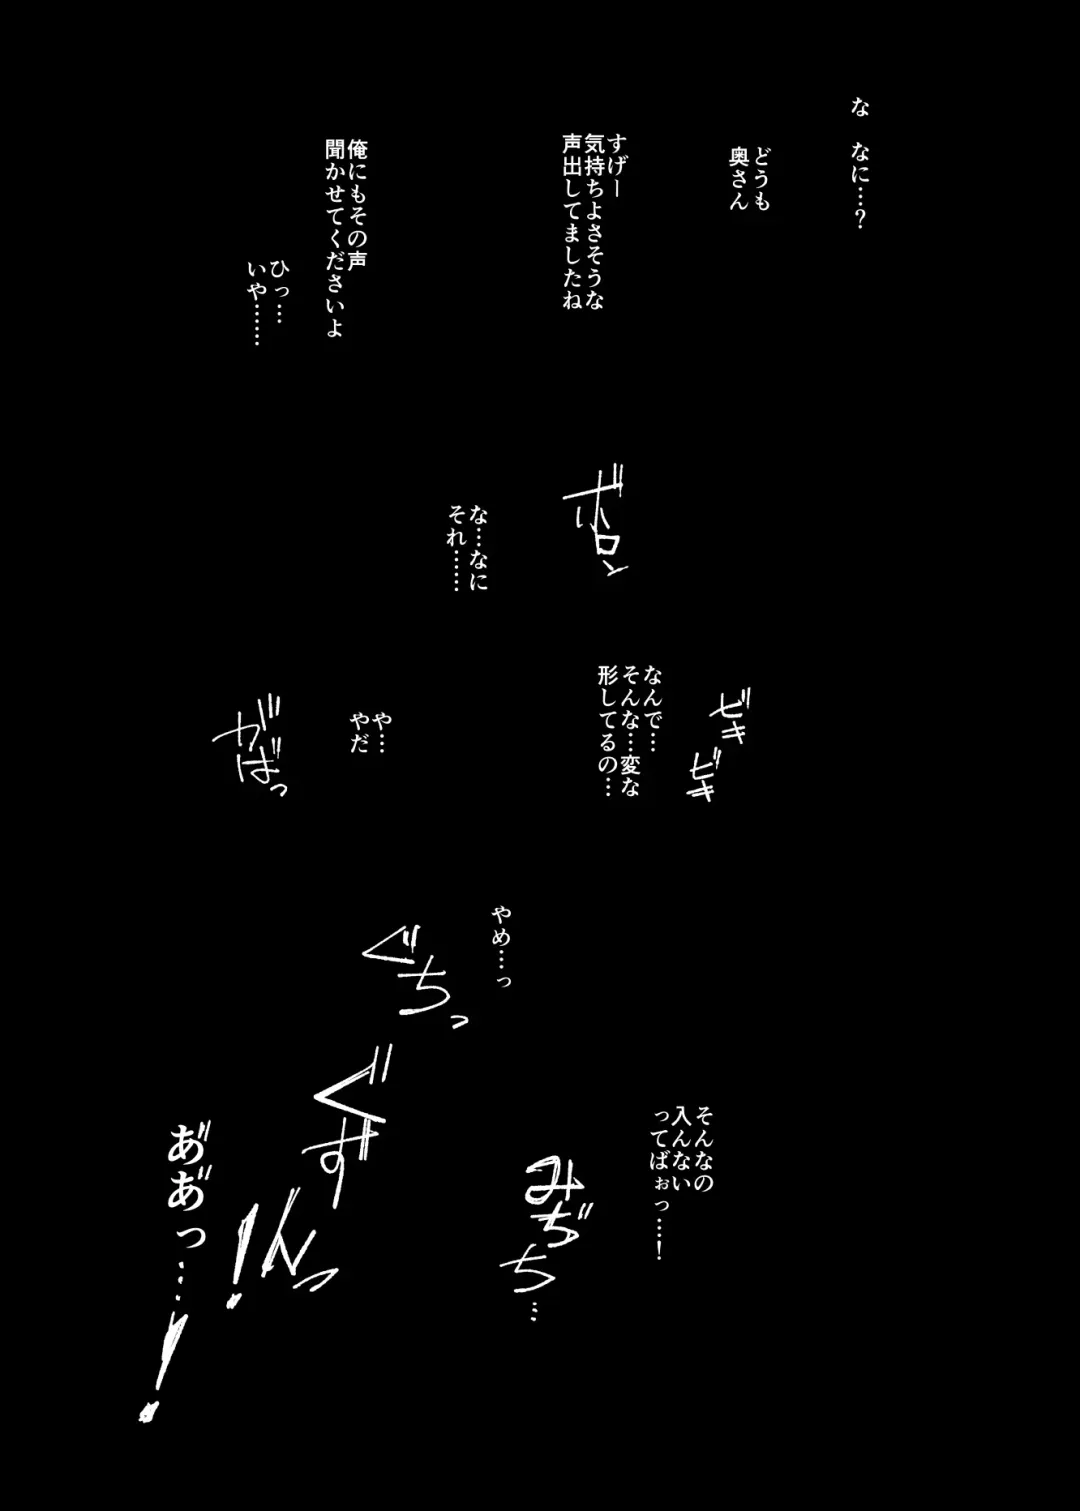 な　なに…？
どうも
奥さん
すげー
気持ちよさそうな
声出してましたね
俺にもその声
聞かせてくださいよ
ひっ…
いや……
ボロン
な…なに
それ……
ビキ
ビキ
なんで…
そんな…変な
形してるの…
や…
やだ
がばっ
やめ…っ
ぐちっ
そんなの
入んない
ってばぉっ…！
みぢち…
ぐずんっ！
あ゛あ゛っ…！